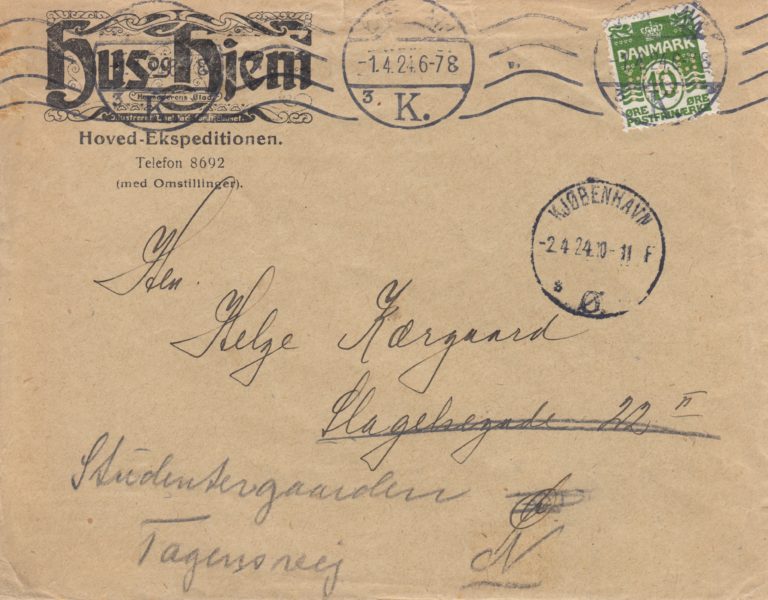 Hus og Hjem
Hoved-Ekspeditionen.
Telefon 8692
(med Omstillinger).
-1.4.24.6-7 8
3 K.
DANMARK
10
ØRE ØRE
POSTFÆRGE
KJØBENHAVN
-2.4.24.10-11 F
s Ø.
Herr
Helge Kærgaard
Slagelsegade 22 II
Studentergaarden
Tagensvej N